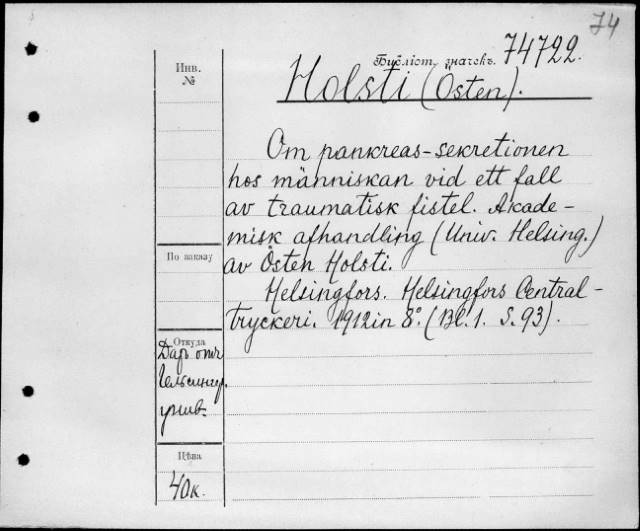 74
Инв.
№
Библіот. значекъ. 74722.
Holsti (Östen).
Om pankreas-sekretionen
hos människan vid ett fall
av traumatisk fistel. Akade-
misk afhandling (Univ. Helsing.)
av Östen Holsti.
Helsingfors. Helsingfors Central-
tryckeri. 1912 in 8°. (Bl. 1. S. 93).
По заказу
Откуда
Даръ отъ
Гельсингф.
унив.
Цѣна
40к.